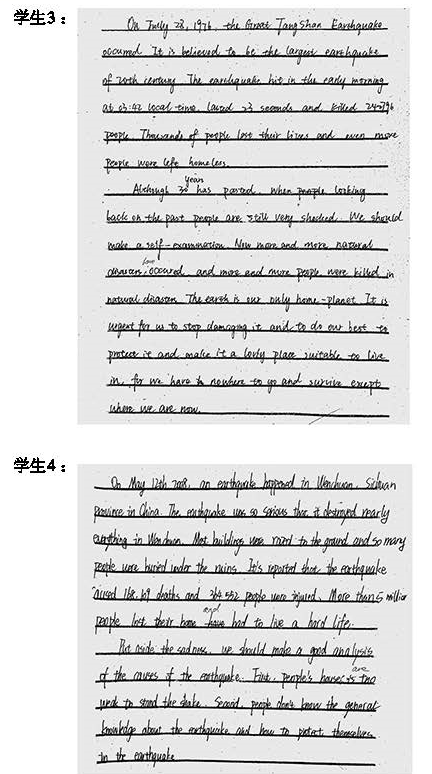 学生3：
On July 28, 1976, the Great TangShan Earthquake
occurred. It is believed to be the largest earthquake
of 20th century. The earthquake hit in the early morning
at 03:42 local time, lasted 23 seconds and killed
people. Thousands of people lost their lives and even more
people were left homeless.
years
Although 30 has passed, when people looking
back on the past people are still very shocked. We should
make a self-examination. Now more and more natural
have
disasters occured and more and more people were killed in
natural disasters. The earth is our only home-planet. It is
urgent for us to stop damaging it and to do our best to
protect it and make it a lovly place suitable to live
in, for we have nowhere to go and survive except
where we are now.
学生4：
On May 12th 2008, an earthquake happened in Wenchuan, Sichuan
province in China. The earthquake was so serious that it destroyed nearly
everything in Wenchuan. Most buildings were to the ground and so many
people were buried under the ruins. It's reported that the earthquake
caused deaths and people were injured. More than 5 million
and
people lost their home have had to live a hard life.
Put aside the sadness, we should make a good analysis
are
of the causes of the earthquake. First, people's houses is too
weak to stand the shake. Second, people don't know the general
knowledge about the earthquake and how to protect themselves
in the earthquake